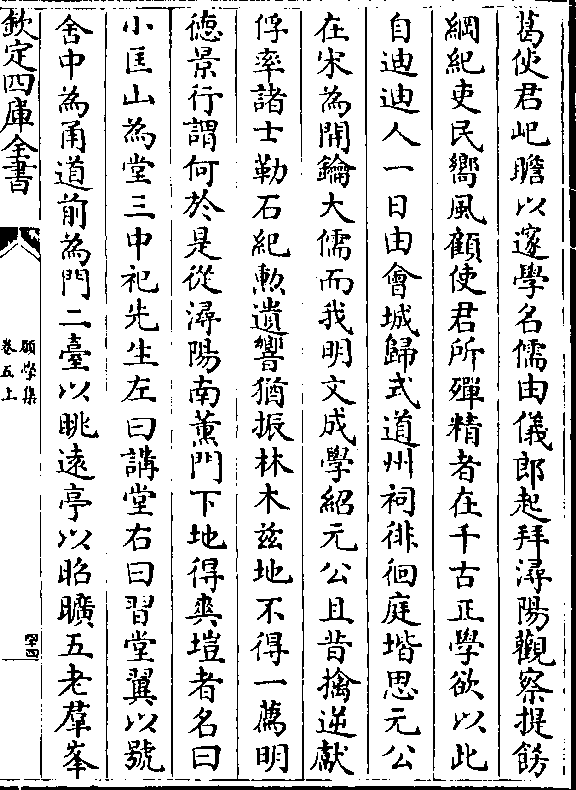 葛使君屺瞻以邃學名儒由儀郎起拜潯陽觀察提飭
綱紀吏民嚮風顧使君所殫精者在千古正學欲以此
自迪迪人一日由會城歸式道州祠徘徊庭堦思元公
在宋為開鑰大儒而我明文成學紹元公且昔擒逆獻
俘率諸士勒石紀勲遺響猶振林木兹地不得一薦明
徳景行謂何於是從潯陽南薰門下地得爽塏者名曰
小匡山為堂三中祀先生左曰講堂右曰習堂翼以號
舍中為甬道前為門二臺以眺遠亭以昭曠五老羣峯
欽定四庫全書
願學集
卷五上
四十四